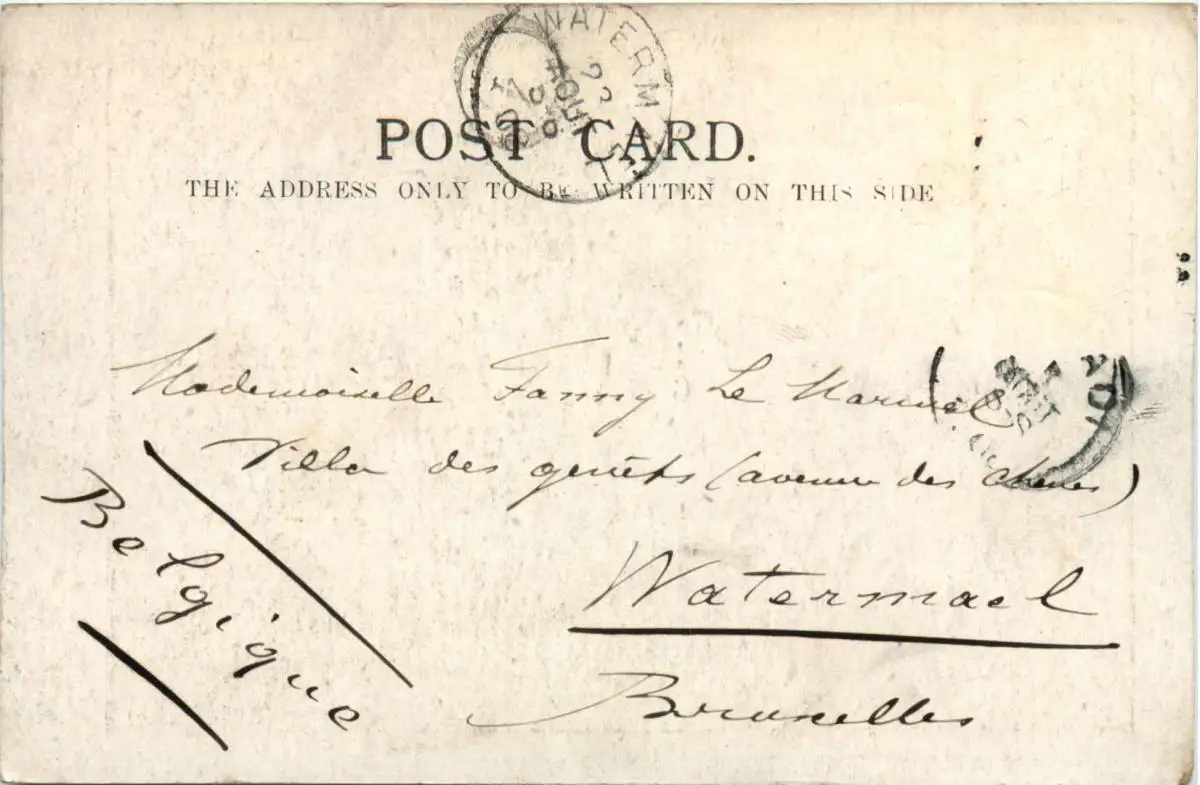 WATERMAEL
POST CARD.
THE ADDRESS ONLY TO BE WRITTEN ON THIS SIDE
Mademoiselle Fanny Le
Villa des genêts (avenue des chênes)
Watermael
Bruxelles
Belgique